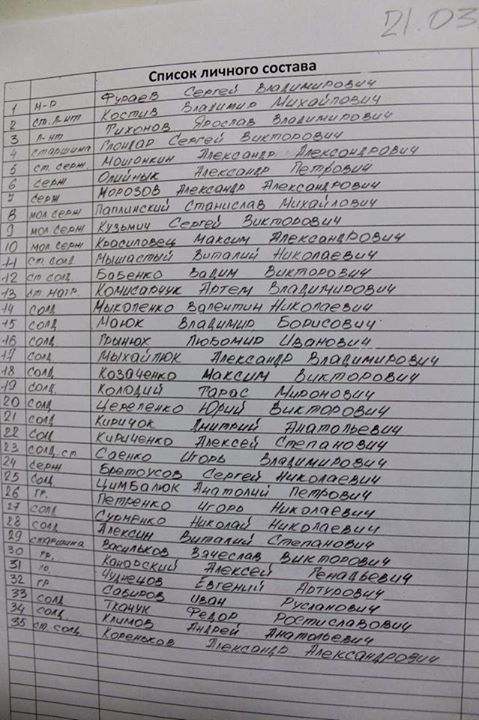 21.03
Список личного состава
1 м-р Фураев Сергей Владимирович
2 ст. л-нт Костив Владимир Михайлович
3 л-нт Тихонов Ярослав Владимирович
4 старшина Гюндар Сергей Викторович
5 ст. серж Мошонкин Александр Александрович
6 серж Олийнык Александр Петрович
7 серж Морозов Александр Александрович
8 мол серж Паплинский Станислав Михайлович
9 мол серж Кузьмич Сергей Викторович
10 мол серж Красиловец Максим Александрович
11 ст солд Мышастый Виталий Николаевич
12 ст солд Бабенко Вадим Викторович
13 ст. матр. Комисарчук Артем Владимирович
14 солд Мыколенко Валентин Николаевич
15 солд Манюк Владимир Борисович
16 солд Гринюх Любомир Иванович
17 солд Мыхайлюк Александр Владимирович
18 солд Козаченко Максим Викторович
19 солд Колодий Тарас Миронович
20 солд Церепенко Юрий Викторович
21 солд Киричок Дмитрий Анатольевич
22 солд Кириченко Алексей Степанович
23 солд. ст. Саенко Игорь Владимирович
24 серж Бретоусов Сергей Николаевич
25 солд Цимбалюк Анатолий Петрович
26 гр. Петренко Игорь Николаевич
27 солд Сурменко Николай Николаевич
28 солд Алексин Виталий Степанович
29 старшина Васильков Вячеслав Викторович
30 гр. Канорский Алексей Генадьевич
31 Чуднецов Евгений Артурович
32 гр Сабиров Иван Русланович
33 солд Ткачук Федор Ростиславович
34 солд Климов Андрей Анатольевич
35 ст. солд Кореньков Александр Александрович